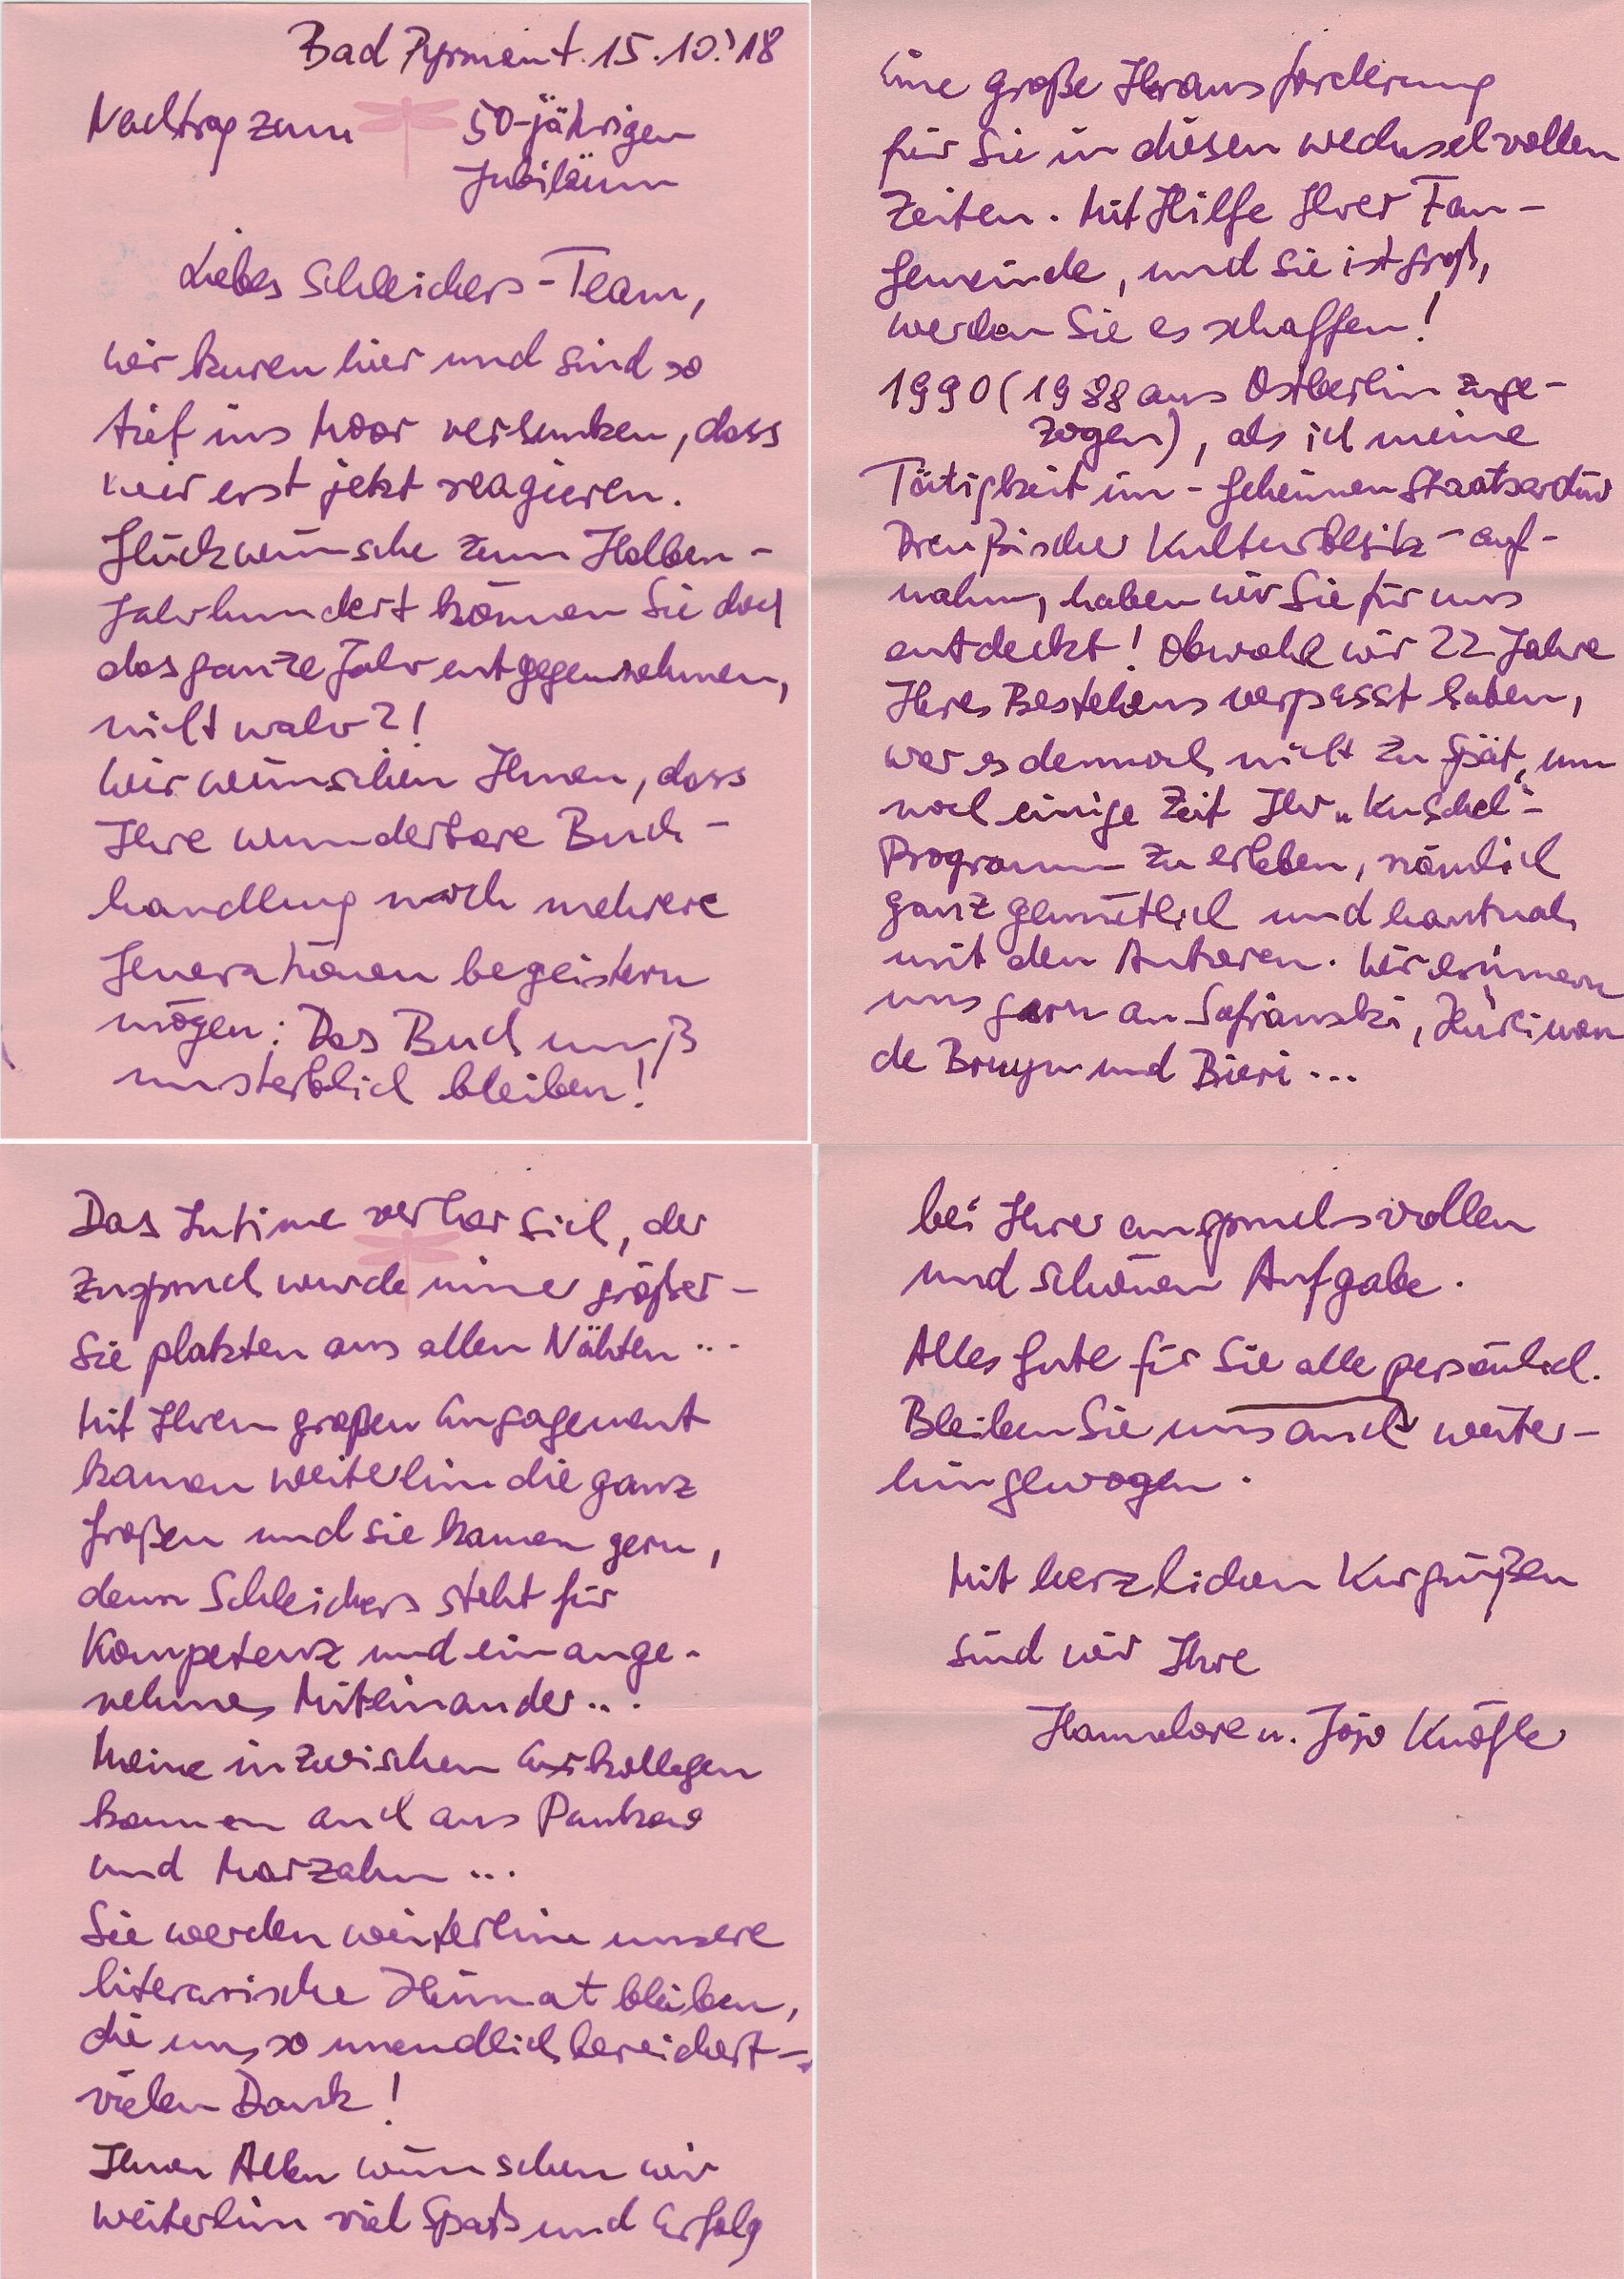 Bad Pyrmont. 15.10.'18
Nachtrag zum 50-jährigen
Jubiläum
Liebes Schleichers-Team,
wir kuren hier und sind so
tief ins Moor versunken, dass
wir erst jetzt reagieren.
Glückwünsche zum Halben-
Jahrhundert können Sie doch
das ganze Jahr entgegennehmen,
nicht wahr?!
Wir wünschen Ihnen, dass
Ihre wunderbare Buch-
handlung noch mehrere
Generationen begeistern
mögen: Das Buch muß
unsterblich bleiben!
Eine große Herausforderung
für Sie in diesen wechselvollen
Zeiten. Mit Hilfe Ihrer Fan-
Gemeinde, und sie ist groß,
werden Sie es schaffen!
1990 (1988 aus Ostberlin zuge-
zogen), als ich meine
Tätigkeit im - Geheimen Staatsarchiv
Preußischer Kulturbesitz - auf-
nahm, haben wir Sie für uns
entdeckt! Obwohl wir 22 Jahre
Ihres Bestehens verpasst haben,
war es dennoch nicht zu spät, um
noch einige Zeit Ihr „Kuschel"-
Programm zu erleben, nämlich
ganz gemütlich und hautnah
mit den Autoren. Wir erinnern
uns gern an Safranski,
de Bruyn und Bieri...
Das Intime verlor sich, der
Zuspruch wurde immer größer -
Sie platzten aus allen Nähten...
Mit Ihrem großen Engagement
kamen weiterhin die ganz
Großen und sie kamen gern,
denn Schleichers steht für
Kompetenz und ein ange-
nehmes Miteinander...
Meine inzwischen Exkollegen
kommen auch aus Pankow
und Marzahn...
Sie werden weiterhin unsere
literarische Heimat bleiben,
die uns so unendlich bereichert -
vielen Dank!
Ihnen Allen wünschen wir
weiterhin viel Spaß und Erfolg
bei Ihrer anspruchsvollen
und schönen Aufgabe.
Alles Gute für Sie alle persönlich.
Bleiben Sie uns auch weiter-
hin gewogen.
Mit herzlichen Kurgrüßen
sind wir Ihre
Hannelore u. Jojo